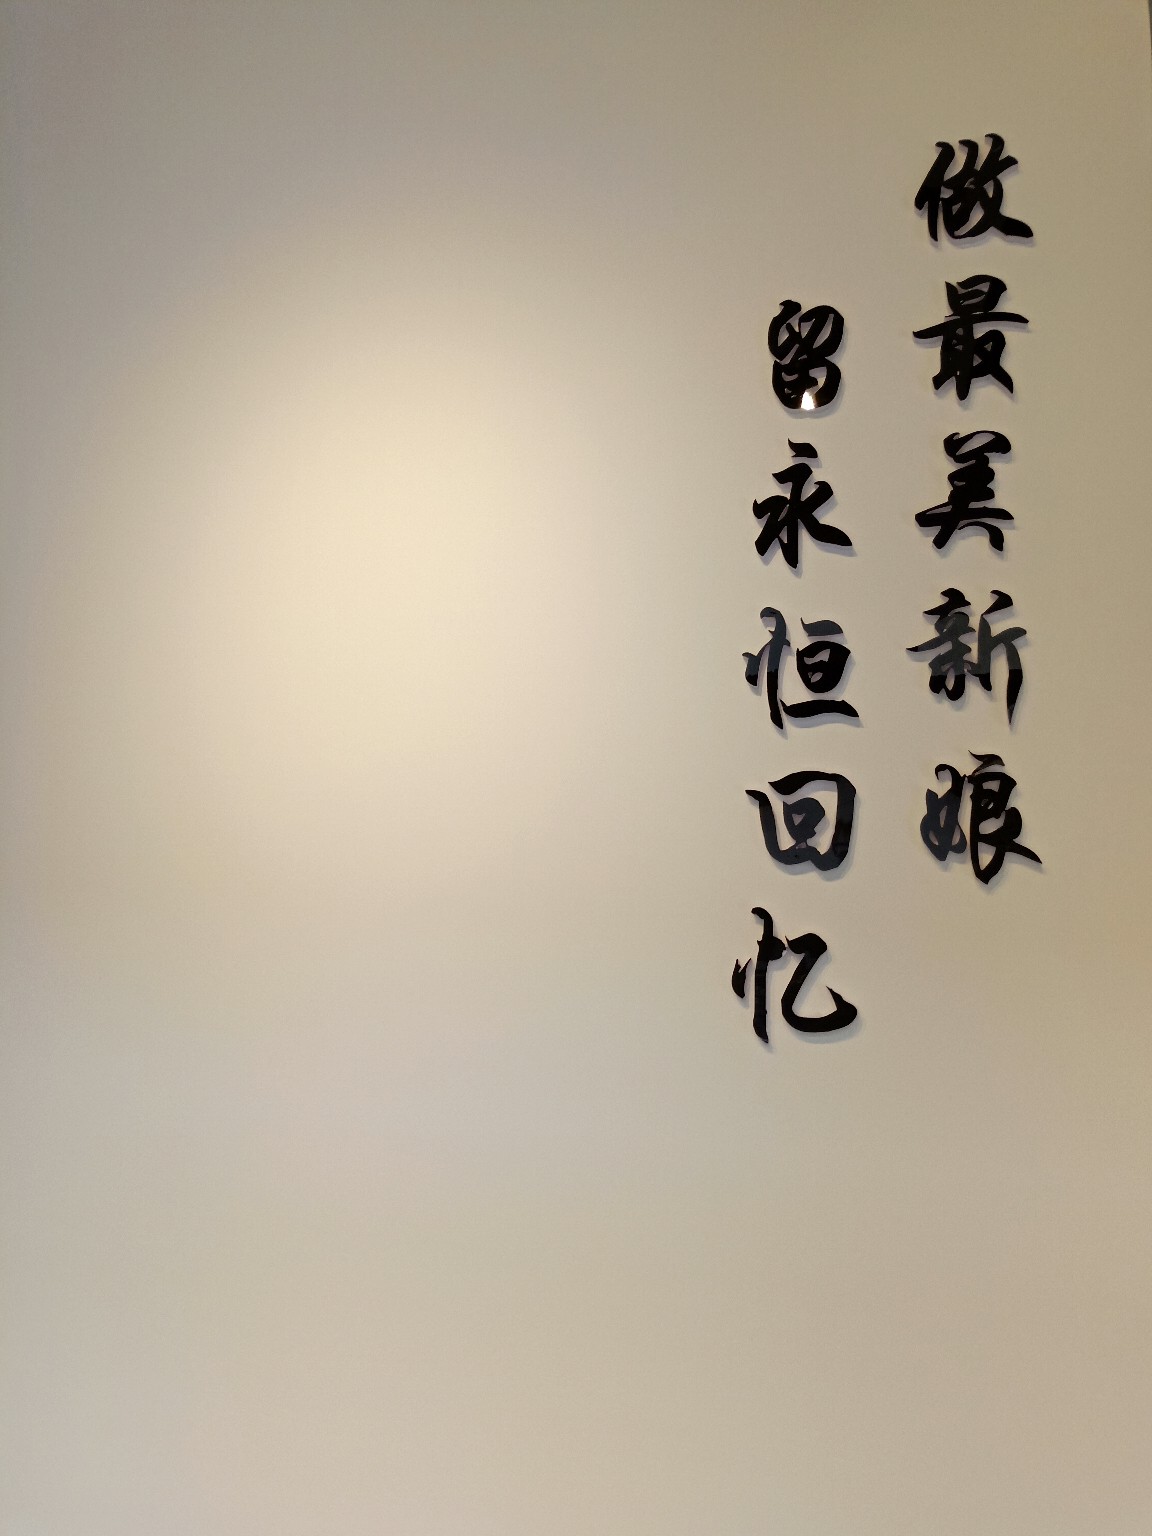 做最美新娘
留永恒回忆